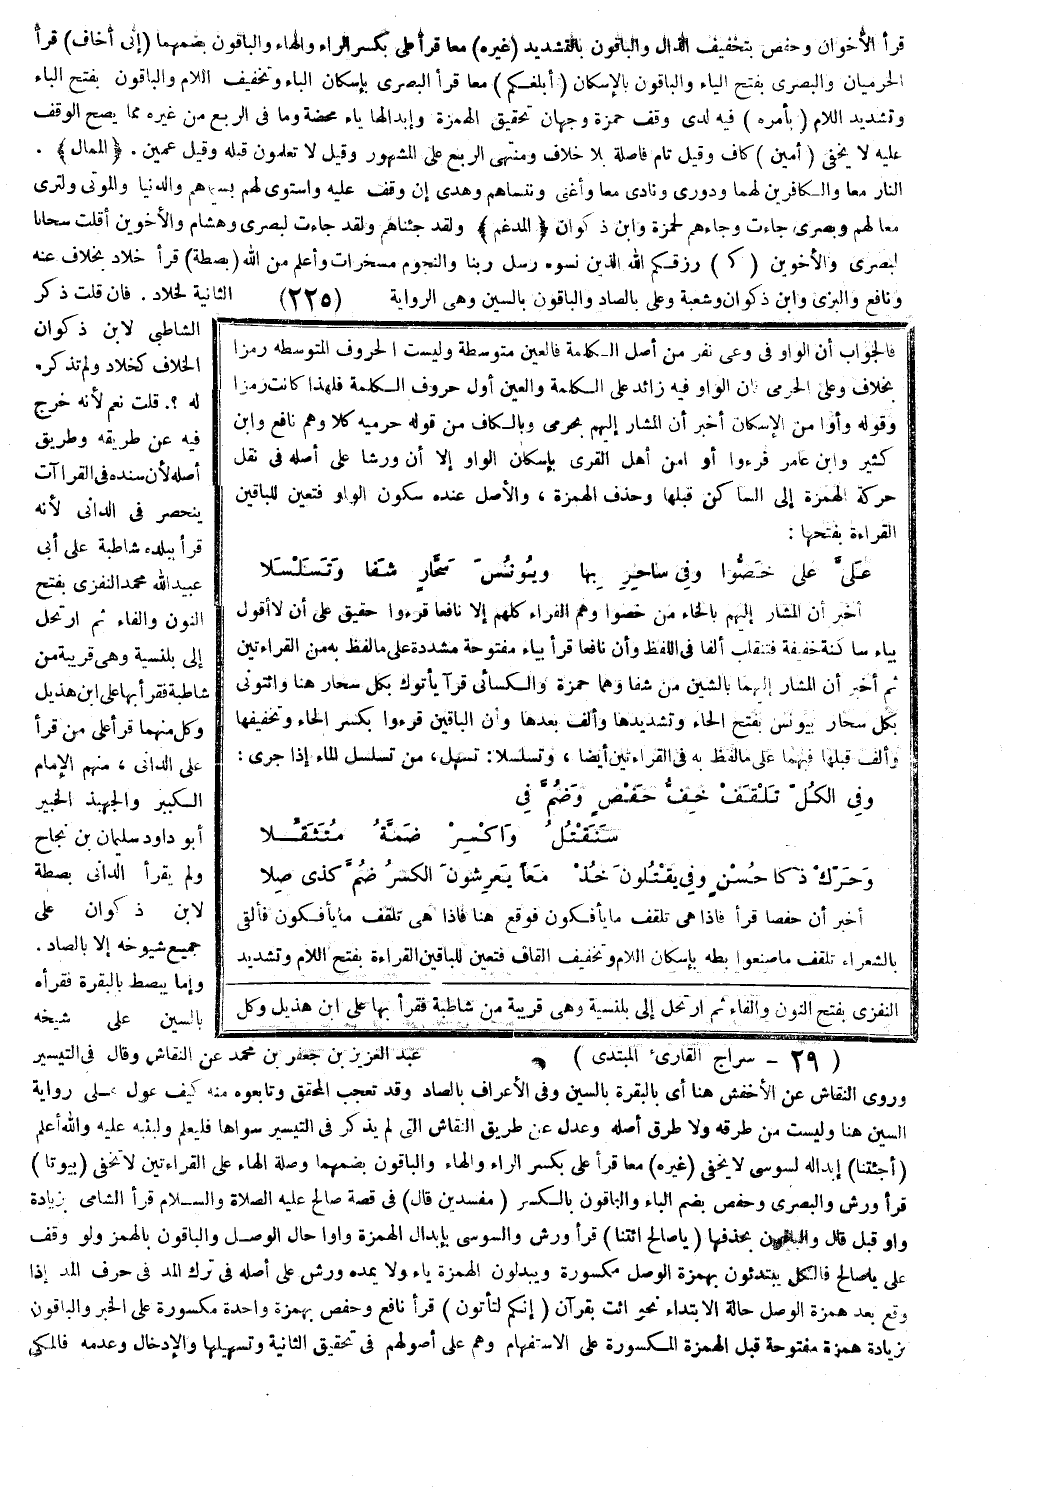 قرأ الأخوان وحفص بتخفيف الذال والباقون بالتشديد (غيره) معا قرأ على بكسر الراء والهاء والباقون بضمهما (إنى أخاف) قرأ
الحرميان والبصرى بفتح الياء والباقون بالإسكان (أبلغكم) معا قرأ البصرى بإسكان الباء وتخفيف اللام والباقون بفتح الباء
وتشديد اللام (بأمره) فيه لدى وقف حمزة وجهان تحقيق الهمزة وإبدالها ياء محضة وما فى الربع من غيره مما يصح الوقف
عليه لا يخفى (أمين) كاف وقيل تام فاصلة بلا خلاف ومنتهى الربع على المشهور وقيل لا تعلمون قبله وقيل عمين . ﴿الممال﴾ .
النار معا والكافرين لهما ودورى ونادى معا وأغنى وننساهم وهدى إن وقف عليه واستوى لهم بسيماهم والدنيا والموتى ولترى
معا لهم وبصرى جاءت وجاءهم لحمزة وابن ذكوان ﴿المدغم﴾ ولقد جئناهم ولقد جاءت لبصرى وهشام والأخوين أقلت سحابا
لبصرى والأخوين (ك) رزقكم الله الذين نسوه رسل ربنا والنجوم مسخرات وأعلم من الله (بصطة) قرأ خلاد بخلاف عنه
ونافع والبزى وابن ذكوان وشعبة وعلى بالصاد والباقون بالسين وهى الرواية (٢٢٥) الثانية لخلاد . فان قلت ذكر
الشاطبى لابن ذكوان
الخلاف كخلاد ولم تذكره
له ؟. قلت نعم لأنه خرج
فيه عن طريقه وطريق
أصله لأن سنده فى القراآت
ينحصر فى الدانى لأنه
قرأ ببلده شاطبة على أبى
عبد الله محمد النفزى بفتح
النون والفاء ثم ارتحل
إلى بلنسية وهى قريبة من
شاطبة فقرأ بها على ابن هذيل
وكل منهما قرأ على من قرأ
على الدانى ، منهم الإمام
الكبير والجهبذ الخبير
أبو داود سليمان بن نجاح
ولم يقرأ الدانى بصطة
لابن ذكوان على
جميع شيوخه إلا بالصاد .
وإما يبصط بالبقرة فقرأه
بالسين على شيخه
فالجواب أن الواو فى وعى نفر من أصل الكلمة فالعين متوسطة وليست الحروف المتوسطه رمزا
بخلاف وعلى الحرمى فان الواو فيه زائد على الكلمة والعين أول حروف الكلمة فلهذا كانت رمزا
وقوله وأوا من الإسكان أخبر أن المشار إليهم بحرمى وبالكاف من قوله حرميه كلا وهم نافع وابن
كثير وابن عامر قرءوا أو امن أهل القرى بإسكان الواو إلا أن ورشا على أصله فى نقل
حركة الهمزة إلى الساكن قبلها وحذف الهمزة ، والأصل عنده سكون الواو فتعين للباقين
القراءة بفتحها :
عَلَىَّ عَلَى خَصُّوا وفِى سَاحِرٍ بِها ويُونُسَ سَحَّارٍ شَفا وَتَسَلْسَلا
أخبر أن المشار إليهم بالخاء من خصوا وهم القراء كلهم إلا نافعا قرءوا حقيق على أن لا أقول
بياء ساكنة خفيفة فتنقلب ألفا فى اللفظ وأن نافعا قرأ بياء مفتوحة مشددة على مالفظ به من القراءتين
ثم أخبر أن المشار إليهما بالشين من شفا وهما حمزة والكسائى قرآ يأتوك بكل سحار هنا وائتونى
بكل سحار بيونس بفتح الحاء وتشديدها وألف بعدها وأن الباقين قرءوا بكسر الحاء وتخفيفها
وألف قبلها فيهما على مالفظ به فى القراءتين أيضا ، وتسلسلا : تسهل ، من تسلسل الماء إذا جرى :
وفِى الكُلِّ تَلْقَفْ خِفُّ حَفْصٍ وَضُمَّ فِى
سَنَقْتُلُ وَاكْسِرْ ضَمَّهُ مُتَثَقِّلا
وَحَرِّكْ ذَكا حُسْنٍ وفِى يَقْتُلُونَ خُذْ مَعاً يَعرِشُونَ الكسرُ ضُمَّ كَذى صِلا
أخبر أن حفصا قرأ فاذا هى تلقف مايأفكون فوقع هنا فاذا هى تلقف مايأفكون فألقى
بالشعراء تلقف ماصنعوا بطه بإسكان اللام وتخفيف القاف فتعين للباقين القراءة بفتح اللام وتشديد
النفزى بفتح النون والفاء ثم ارتحل إلى بلنسية وهى قريبة من شاطبة فقرأ بها على ابن هذيل وكل
(٢٩ - سراج القارئ المبتدى) عبد العزيز بن جعفر بن محمد عن النقاش وقال فى التيسير
وروى النقاش عن الأخفش هنا أى بالبقرة بالسين وفى الأعراف بالصاد وقد تعجب المحقق وتابعوه منه كيف عول على رواية
السين هنا وليست من طرقه ولا طرق أصله وعدل عن طريق النقاش التى لم يذكر فى التيسير سواها فليعلم ولينبه عليه والله أعلم
(أجئتنا) إبداله لسوسى لا يخفى (غيره) معا قرأ على بكسر الراء والهاء والباقون بضمهما وصلة الهاء على القراءتين لا تخفى (بيوتا)
قرأ ورش والبصرى وحفص بضم الباء والباقون بالكسر (مفسدين قال) فى قصة صالح عليه الصلاة والسلام قرأ الشامى بزيادة
واو قبل قال والباقون بحذفها (ياصالح ائتنا) قرأ ورش والسوسى بإبدال الهمزة واوا حال الوصل والباقون بالهمز ولو وقف
على ياصالح فالكل يبتدئون بهمزة الوصل مكسورة ويبدلون الهمزة ياء ولا يمده ورش على أصله فى ترك المد فى حرف المد إذا
وقع بعد همزة الوصل حالة الابتداء نحو ائت بقرآن (إنكم لتأتون) قرأ نافع وحفص بهمزة واحدة مكسورة على الخبر والباقون
بزيادة همزة مفتوحة قبل الهمزة المكسورة على الاستفهام وهم على أصولهم فى تحقيق الثانية وتسهيلها والإدخال وعدمه فالمكى